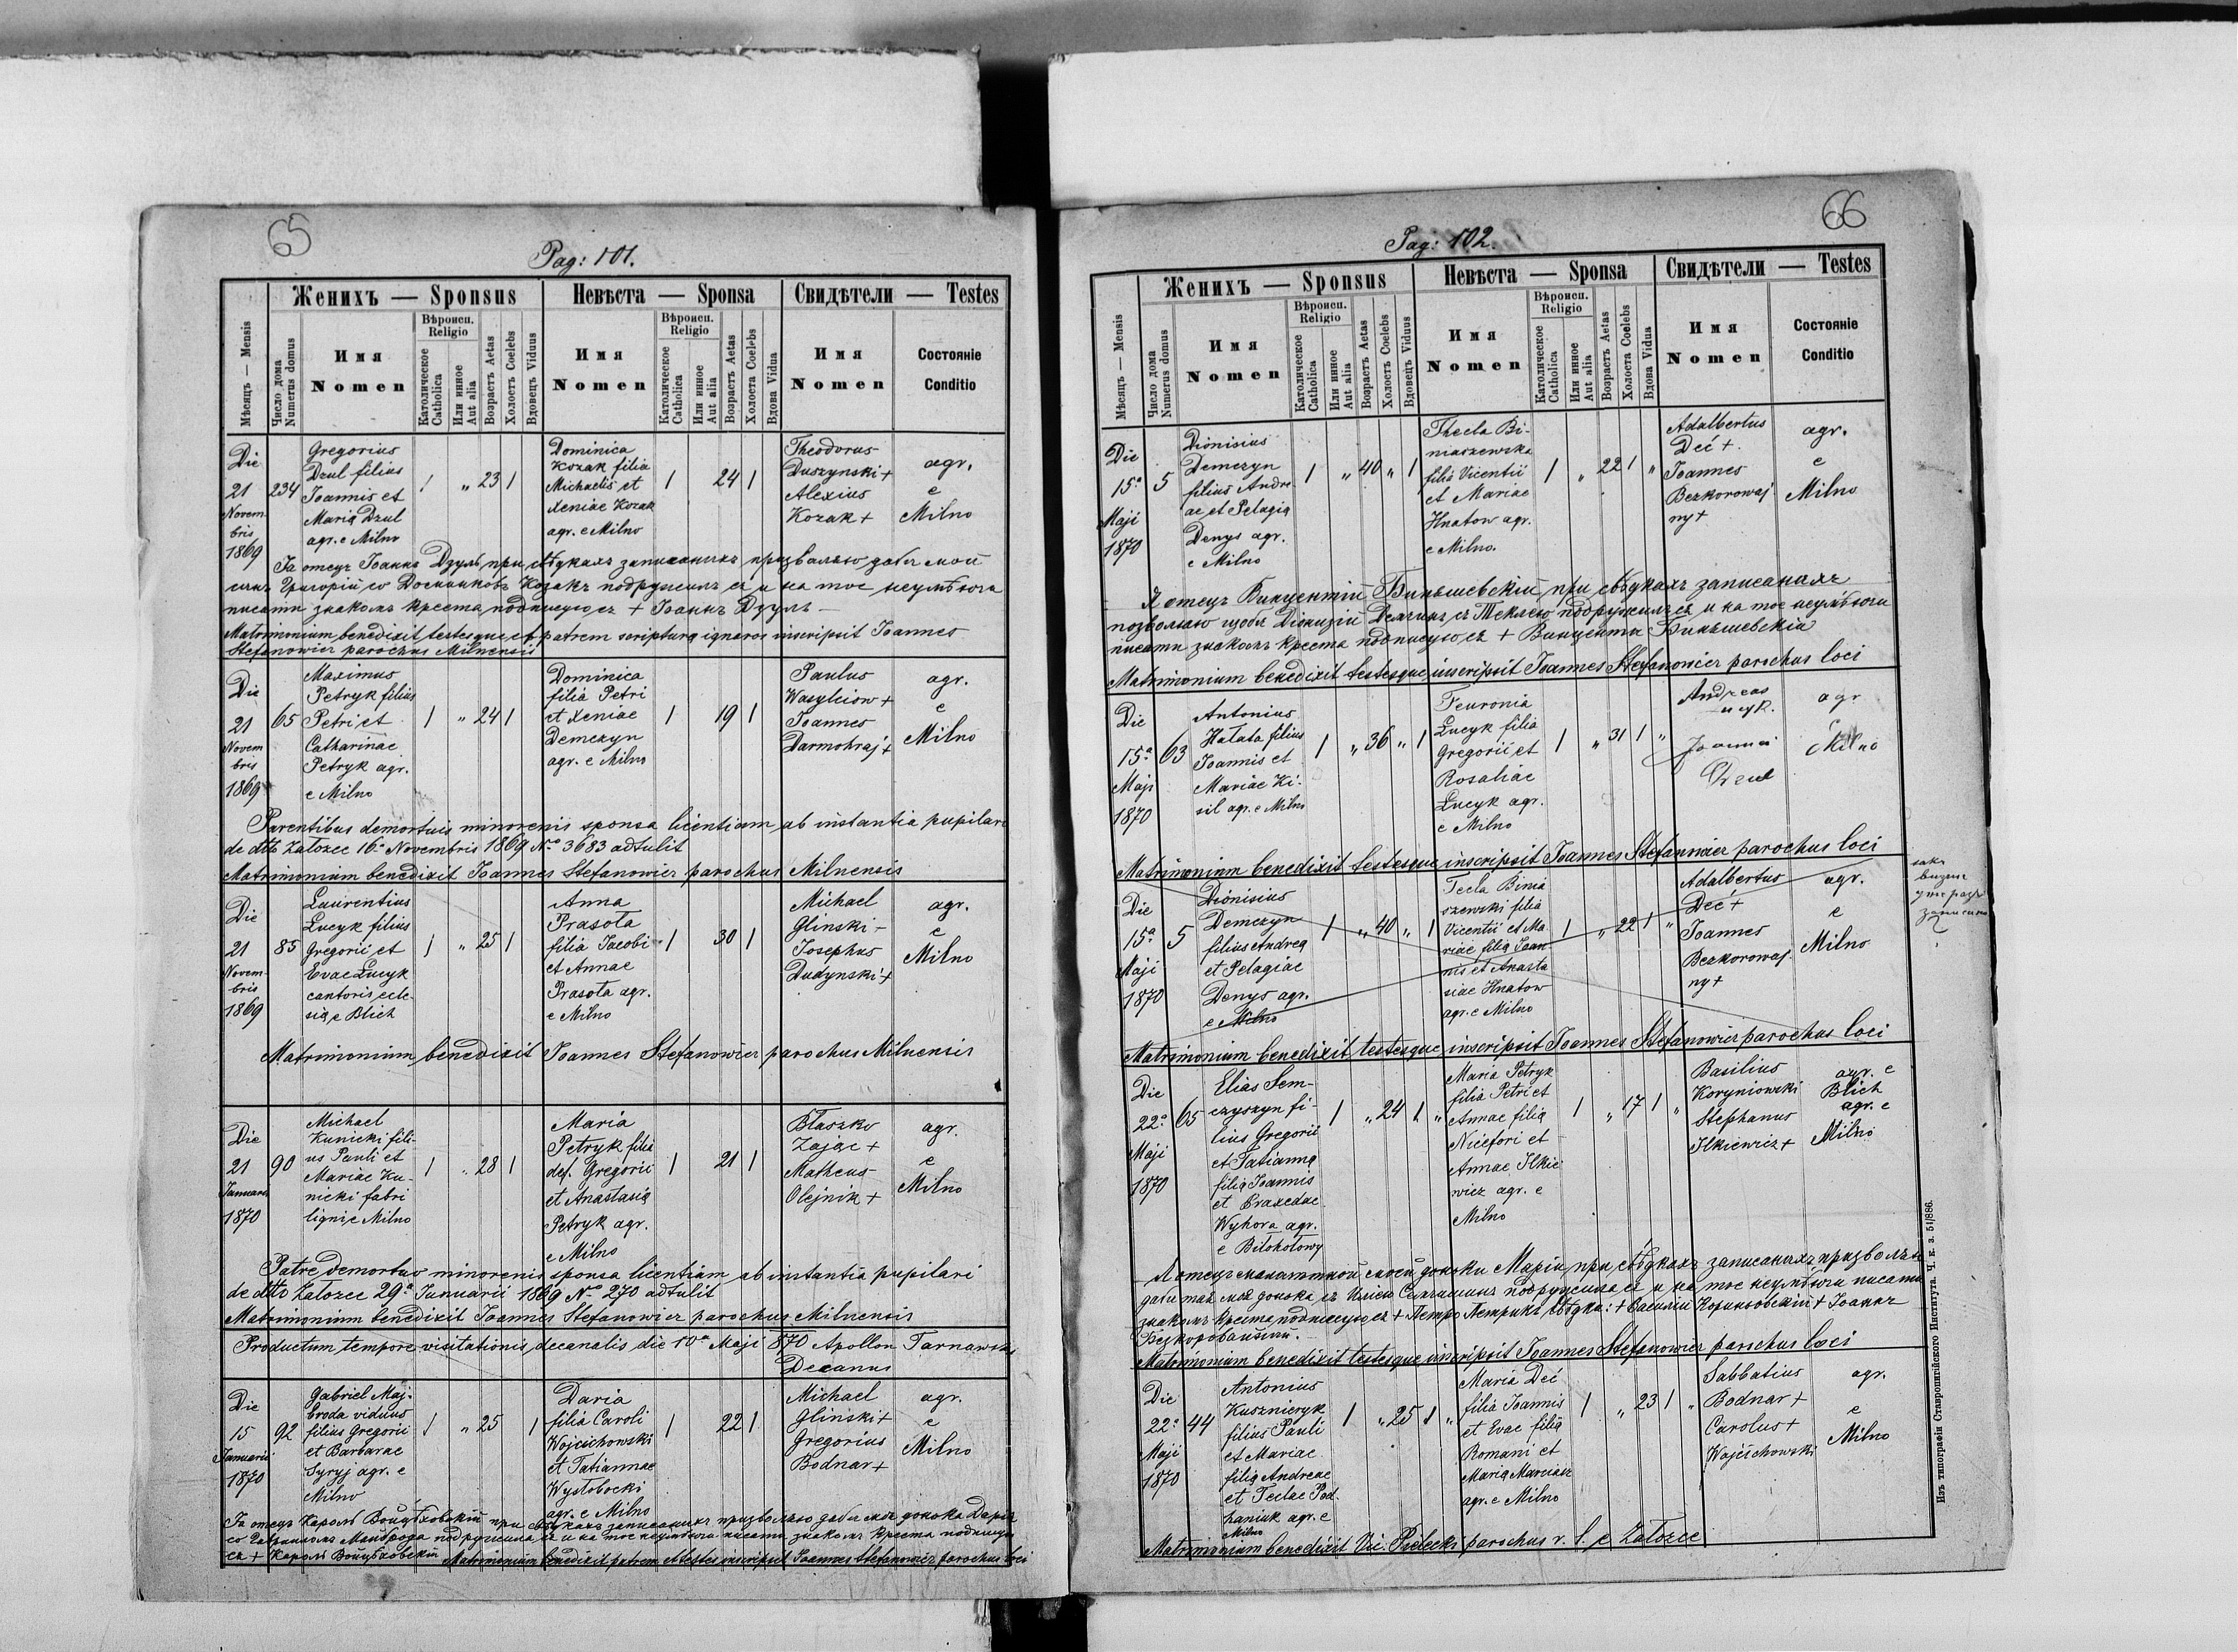 65
Pag: 101.
Женихъ — Sponsus
Невѣста — Sponsa
Свидѣтели — Testes
Мѣсяцъ — Mensis
Число дома
Numerus domus
Имя
Nomen
Вѣроисп.
Religio
Католическое
Catholica
Или инное
Aut alia
Возрастъ Aetas
Холостъ Coelebs
Вдовецъ Viduus
Имя
Nomen
Вѣроисп.
Religio
Католическое
Catholica
Или инное
Aut alia
Возрастъ Aetas
Холоста Coelebs
Вдова Vidua
Имя
Nomen
Состояніе
Conditio
Die
21
Novem
bris
1869
234
Gregorius
Dzul filius
Joannis et
Maria Dzul
agr. e Milno
1 " 23 1
Dominica
Kozak filia
Michaelis et
Xeniae Kozak
agr. e Milno
1 24 1
Theodorus
Duszynski +
Alexius
Kozak +
agr.
e
Milno
Я отецъ Іоаннъ Дзулъ при свѣдкахъ записаныхъ призваляю дабы мой
сынъ Григорій со Доминиковъ Козакъ подружилъ ся и на тое неумѣюча
писати знакомъ креста подписую ся + Іоаннъ Дзулъ
Matrimonium benedixit testesque et patrem scriptura ignaros inscripsit Joannes
Stefanowicz parochus Milnensis
Die
21
Novem
bris
1869
65
Maximus
Petryk filius
Petri et
Catharinae
Petryk agr.
e Milno
1 " 24 1
Dominica
filia Petri
et Xeniae
Demczyn
agr. e Milno
1 19 1
Paulus
Wasylciow +
Joannes
Darmohraj +
agr.
e
Milno
Parentibus demortuis minorenis sponsa licentiam ab instantia pupilari
de dtto Zalozce 16. Novembris 1869 No 3683 adtulit
Matrimonium benedixit Joannes Stefanowicz parochus Milnensis
Die
21
Novem-
bris
1869
85
Laurentius
Lucyk filius
Gregorii et
Evae Lucyk
cantoris eccle-
sia, e Blich
1 " 25 1
Anna
Prasota
filia Jacobi
et Annae
Prasota agr.
e Milno
1 30 1
Michael
Glinski -
Josephus
Dudynski +
agr.
e
Milno
Matrimonium benedixit Joannes Stefanowicz parochus Milnensis
Die
21
Januarii
1870
90
Michael
Kunicki fili-
us Pauli et
Mariae Ku-
nicki fabri
lign: e Milno
1 " 28 1
Maria
Petryk filia
def. Gregorii
et Anastasia
Petryk agr.
e Milno
1 21 1
Błaszko
Zajac +
Matheus
Olejnik +
agr.
e
Milno
Patre demortuo minorenis sponsa licentiam ab instantia pupilari
de dtto Zalozce 29. Januarii 1869 No 270 adtulit
Matrimonium benedixit Joannes Stefanowicz parochus Milnensis
Productum tempore visitationis decanalis die 10a Maji 870 Apollon Tarnawski
Decanus
Die
15
Januarii
1870
92
Gabriel Maj-
broda viduus
filius Gregorii
et Barbarae
Syryj agr. e
Milno
1 " 25 1
Daria
filia Caroli
Wojcichowski
et Tatiannae
Wystobocki
agr. e Milno
1 22 1
Michael
Glinski +
Gregorius
Bodnar +
agr.
e
Milno
Я отецъ Кароль Войцѣховскій при свѣдкахъ записаныхъ призволяю дабы моя донька Дарія
со Гавриломъ Майброда подружила ся и на тое неумѣюча писати знакомъ креста подписую
ся + Кароль Войцѣховскій Matrimonium benedixit patrem et testes inscripsit Joannes Stefanowicz parochus loci
66
Pag: 102.
Женихъ — Sponsus
Невѣста — Sponsa
Свидѣтели — Testes
Мѣсяцъ — Mensis
Число дома
Numerus domus
Имя
Nomen
Вѣроисп.
Religio
Католическое
Catholica
Или инное
Aut alia
Возрастъ Aetas
Холостъ Coelebs
Вдовецъ Viduus
Имя
Nomen
Вѣроисп.
Religio
Католическое
Catholica
Или инное
Aut alia
Возрастъ Aetas
Холоста Coelebs
Вдова Vidua
Имя
Nomen
Состояніе
Conditio
Die
15a
Maji
1870
5
Dionisius
Demczyn
filius Andre
ae et Pelagia
Denys agr.
e Milno
1 " 40 " 1
Thecla Bi-
niaszewska
filia Vicentii
et Mariae
Hnatow agr.
e Milno.
1 " 22 1 "
Adalbertus
Deć +.
Joannes
Bezkorowaj
ny +
agr.
e
Milno
Я отецъ Винцентій Биняшевскій при свѣдкахъ записаныхъ
позволяю щобы Діонизій Демчинъ съ Теклею подружилъ ся и на тое неумѣючи
писати знакомъ креста подписую ся + Винценти Биняшевскій
Matrimonium benedixit testesque inscripsit Joannes Stefanowicz parochus loci
Die
15a
Maji
1870
63
Antonius
Hałata filius
Joannis et
Mariae Ki-
sil agr. e Milno
1 " 36 " 1
Feuronia
Lucyk filia
Gregorii et
Rosaliae
Lucyk agr.
e Milno
1 " 31 1 "
Andreas
Joannes
Dzul
agr
e Milno
Matrimonium benedixit testesque inscripsit Joannes Stefanowicz parochus loci
Die
15a
Maji
1870
5
Dionisius
Demczyn
filius Andrea
et Pelagiae
Denys agr.
e Milno
1 " 40 " 1
Tecla Binia
szewski filia
Vicentii et Ma
riae filia Joan
nis et Anasta
siae Hnatow
agr. e Milno
1 " 22 1 "
Adalbertus
Deć +
Joannes
Bezkorowaj
ny +
agr.
e
Milno
Matrimonium benedixit testesque inscripsit Joannes Stefanowicz parochus loci
Die
22a
Maji
1870
65
Elias Sem-
czyszyn fi-
lius Gregorii
et Tatianna
filia Joannis
et Praxedae
Wyhora agr.
e Bitokotowy
1 " 24 1 "
Maria Petryk
filia Petri et
Annae filia
Nicefori et
Annae Ilkie
wicz agr. e
Milno
1 " 17 1 "
Basilius
Koryniowski
Stephanus
Ilkiewicz +
agr. e
Blich
agr. e
Milno
Я отецъ малолѣтной моей доньки Маріи при свѣдкахъ записаныхъ призволяю
дабы тая моя донька съ Иліею Семчишинъ подружила ся и на тое неумѣючи писати
знакомъ креста подписую ся + Петро Петрикъ свѣдки: + Василій Кориньовскій + Іоаннъ
Безкоровайный.
Matrimonium benedixit testesque inscripsit Joannes Stefanowicz parochus loci
Die
22a
Maji
1870
44
Antonius
Kusznieryk
filius Pauli
et Mariae
filia Andreae
et Teclae Pod-
haniuk agr. e
Milno
1 " 25 1 "
Maria Deć
filia Joannis
et Evae filia
Romani et
Maria Marciasz
agr. e Milno
1 " 23 1 "
Sabbatius
Bodnar +
Carolus +
Wojcichowski
agr.
e
Milno
Matrimonium benedixit Vic. Pielecki parochus r. l. e Zalozce
Изъ типографіи Ставропигійского Института. Ч. к. з. 51/886.